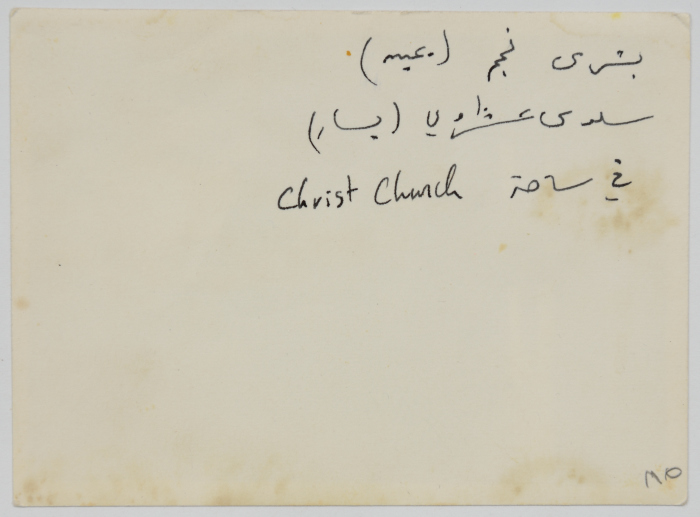 بشرى نجم (يمين)
سلوى عشراوي (يسار)
في ساحة Christ Church